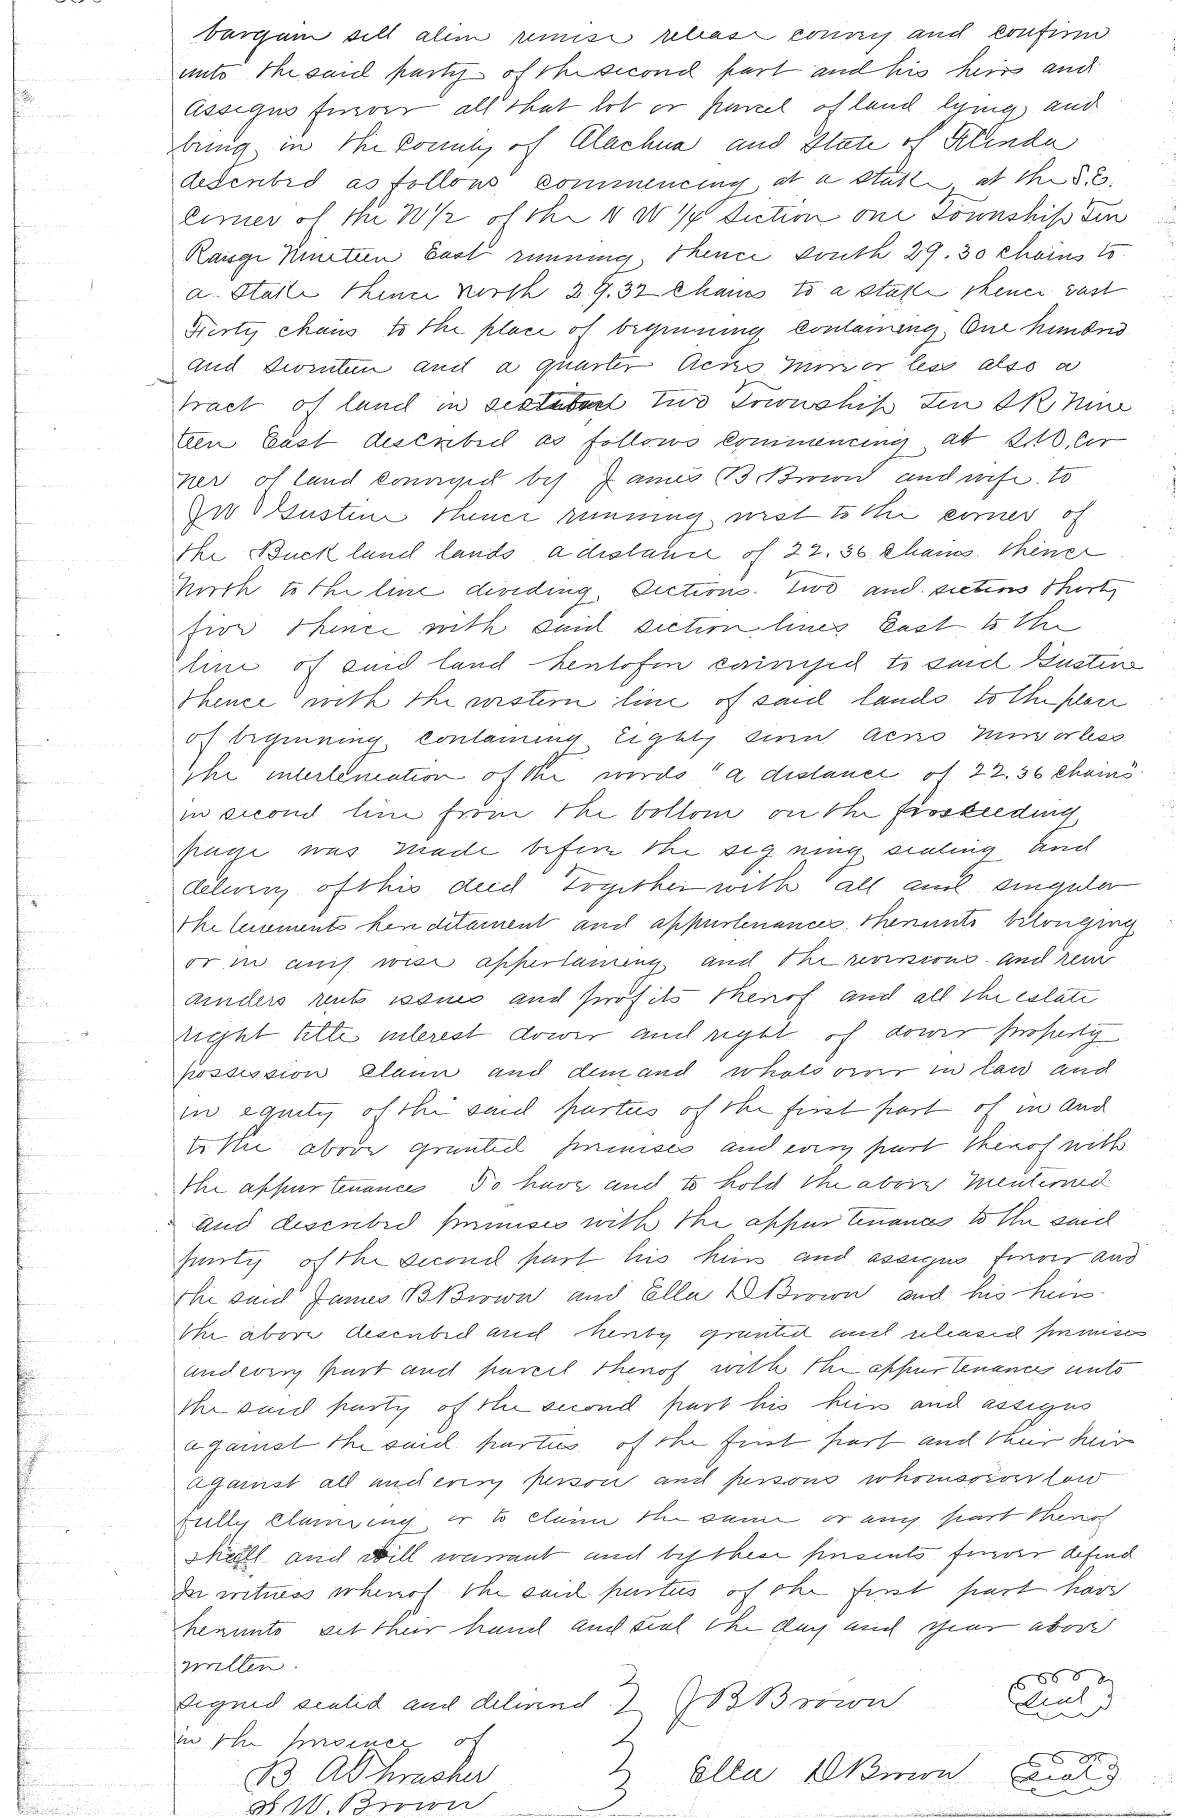 bargain sell alien remise release convey and confirm
unto the said party of the second part and his heirs and
assigns forever all that lot or parcel of land lying and
being in the County of Alachua and State of Florida
described as follows commencing at a stake at the S.E.
corner of the W 1/2 of the N W 1/4 Section one Township Ten
Range Nineteen East running thence south 29.30 chains to
a stake thence North 29.32 chains to a stake thence east
Forty chains to the place of beginning containing One hundred
and seventeen and a quarter Acres more or less also a
tract of land in two Township Ten S R Nine
teen East described as follows commencing at S.W. Cor
ner of land conveyed by James B Brown and wife to
J W Gustine thence running west to the corner of
the Buckland lands a distance of 22.36 chains thence
North to the line dividing Sections Two and sections thirty
five thence with said section lines East to the
line of said land heretofore conveyed to said Gustine
thence with the western line of said lands to the place
of beginning containing Eighty seven acres more or less
The interlineation of the words "a distance of 22.36 chains"
in second line from the bottom on the
page was made before the signing sealing and
delivery of this deed Together with all and singular
the tenements hereditament and appurtenances thereunto belonging
or in any wise appertaining and the revisions and rem
ainders rents issues and profits thereof and all the estate
right title interest dower and right of dower property
possession claim and demand whatsoever in law and
in equity of the said parties of the first part of in and
to the above granted premises and every part thereof with
the appurtenances To have and to hold the above mentioned
and described premises with the appurtenances to the said
party of the second part his heirs and assigns forever and
the said James B Brown and Ella D Brown and his heirs
the above described and hereby granted and released premises
and every part and parcel thereof with the appurtenances unto
the said party of the second part his heirs and assigns
against the said parties of the first part and their heirs
against all and every person and persons whomsoever law
fully claiming or to claim the same or any part thereof
shall and will warrant and by these presents forever defend
In witness whereof the said parties of the first part have
hereunto set their hand and seal the day and year above
written.
Signed sealed and delivered } J B Brown Seal
in the presence of
B A Thrasher } Ella D Brown Seal
W. Brown